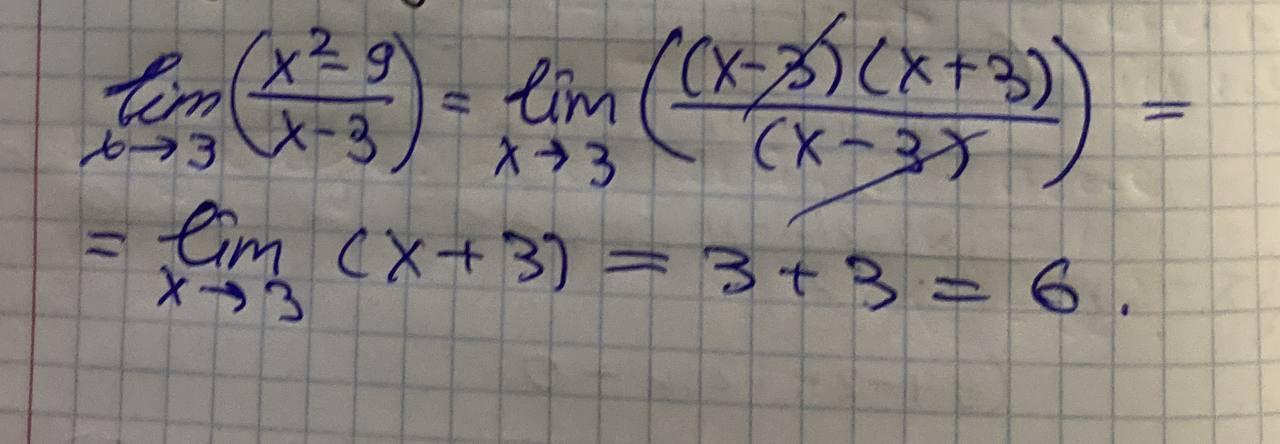 lim x→3 (x² - 9 / x - 3) = lim x→3 ((x - 3)(x + 3) / (x - 3)) =
= lim x→3 (x + 3) = 3 + 3 = 6.